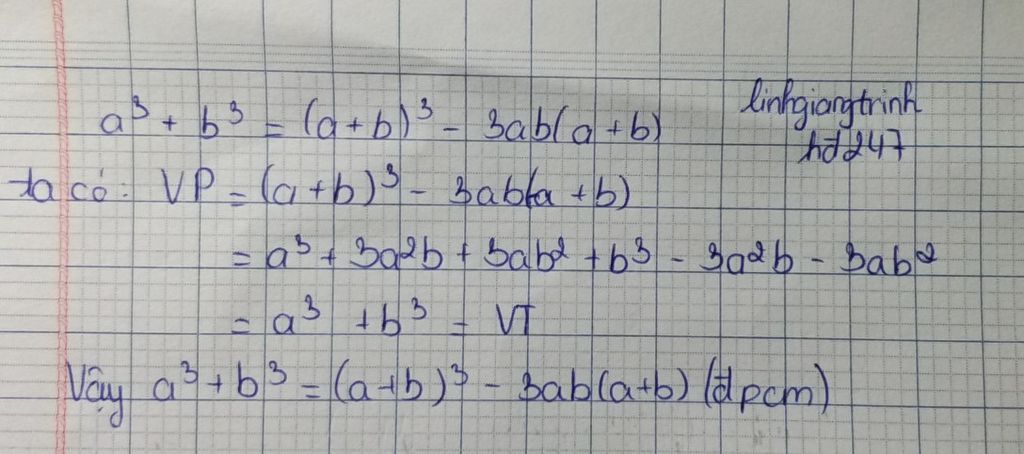 a³ + b³ = (a+b)³ - 3ab(a+b)
linhgiangtrinh
hd247
ta có: VP = (a+b)³ - 3ab(a+b)
= a³ + 3a²b + 3ab² + b³ - 3a²b - 3ab²
= a³ + b³ = VT
Vậy a³ + b³ = (a+b)³ - 3ab(a+b) (đpcm)